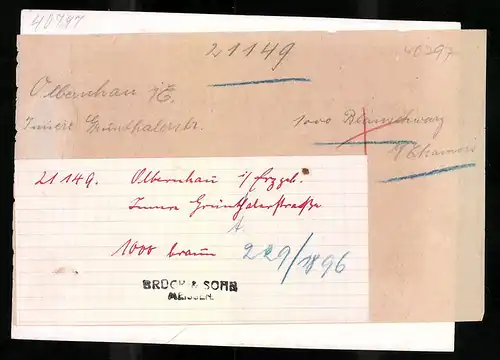 40747
21149
40297
Olbernhau i/E.
Innere Grundthalerstr.
1000 Blauschwarz
21149. Olbernhau i/Erzgeb.
Innere Grünthalerstraße
1000 braun
229/1896
BRÜCK & SOHN
MEISSEN.